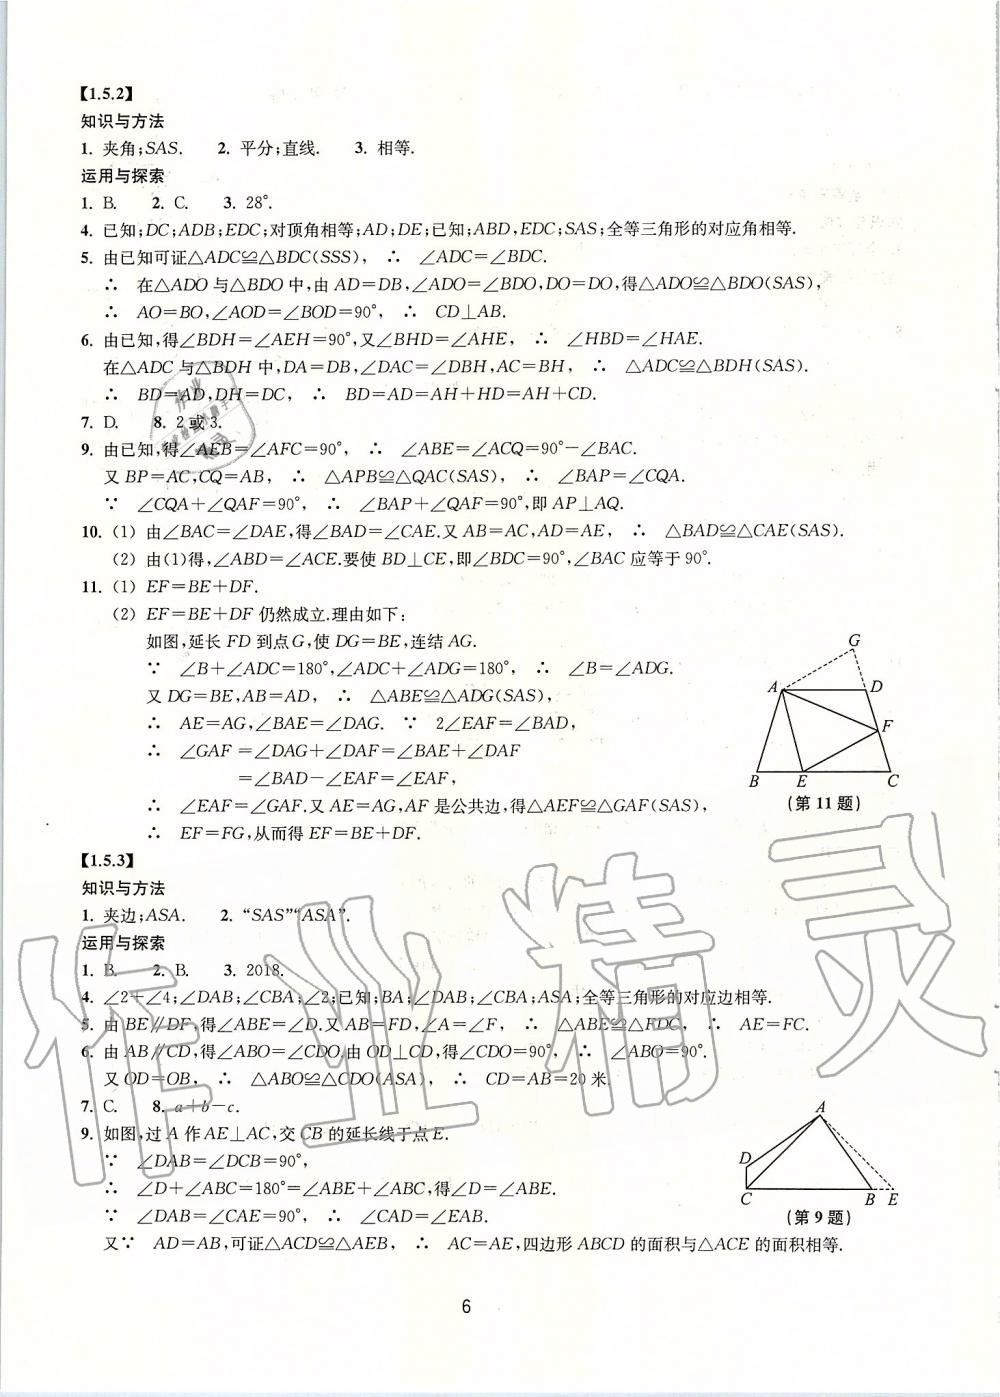 【1.5.2】
知识与方法
1. 夹角;SAS. 2. 平分;直线. 3. 相等.
运用与探索
1. B. 2. C. 3. 28°.
4. 已知;DC;ADB;EDC;对顶角相等;AD;DE;已知;ABD,EDC;SAS;全等三角形的对应角相等.
5. 由已知可证△ADC≌△BDC(SSS), ∴ ∠ADC=∠BDC.
∴ 在△ADO与△BDO中,由AD=DB,∠ADO=∠BDO,DO=DO,得△ADO≌△BDO(SAS),
∴ AO=BO,∠AOD=∠BOD=90°, ∴ CD⊥AB.
6. 由已知,得∠BDH=∠AEH=90°,又∠BHD=∠AHE, ∴ ∠HBD=∠HAE.
在△ADC与△BDH中,DA=DB,∠DAC=∠DBH,AC=BH, ∴ △ADC≌△BDH(SAS).
∴ BD=AD,DH=DC, ∴ BD=AD=AH+HD=AH+CD.
7. D. 8. 2或3.
9. 由已知,得∠AEB=∠AFC=90°, ∴ ∠ABE=∠ACQ=90°-∠BAC.
又BP=AC,CQ=AB, ∴ △APB≌△QAC(SAS), ∴ ∠BAP=∠CQA.
∵ ∠CQA+∠QAF=90°, ∴ ∠BAP+∠QAF=90°,即AP⊥AQ.
10. (1) 由∠BAC=∠DAE,得∠BAD=∠CAE.又AB=AC,AD=AE, ∴ △BAD≌△CAE(SAS).
(2) 由(1)得,∠ABD=∠ACE.要使BD⊥CE,即∠BDC=90°,∠BAC应等于90°.
11. (1) EF=BE+DF.
(2) EF=BE+DF仍然成立.理由如下:
如图,延长FD到点G,使DG=BE,连结AG.
∵ ∠B+∠ADC=180°,∠ADC+∠ADG=180°, ∴ ∠B=∠ADG.
又DG=BE,AB=AD, ∴ △ABE≌△ADG(SAS),
∴ AE=AG,∠BAE=∠DAG. ∵ 2∠EAF=∠BAD,
∴ ∠GAF=∠DAG+∠DAF=∠BAE+∠DAF
=∠BAD-∠EAF=∠EAF,
∴ ∠EAF=∠GAF.又AE=AG,AF是公共边,得△AEF≌△GAF(SAS),
∴ EF=FG,从而得EF=BE+DF.
G
A D
F
B E C
(第11题)
【1.5.3】
知识与方法
1. 夹边;ASA. 2. “SAS”“ASA”.
运用与探索
1. B. 2. B. 3. 2018.
4. ∠2+∠4;∠DAB;∠CBA;∠2;已知;BA;∠DAB;∠CBA;ASA;全等三角形的对应边相等.
5. 由BE∥DF,得∠ABE=∠D.又AB=FD,∠A=∠F, ∴ △ABE≌△FDC, ∴ AE=FC.
6. 由AB∥CD,得∠ABO=∠CDO.由OD⊥CD,得∠CDO=90°, ∴ ∠ABO=90°.
又OD=OB, ∴ △ABO≌△CDO(ASA), ∴ CD=AB=20米.
7. C. 8. a+b-c.
9. 如图,过A作AE⊥AC,交CB的延长线于点E.
∵ ∠DAB=∠DCB=90°,
∴ ∠D+∠ABC=180°=∠ABE+∠ABC,得∠D=∠ABE.
∵ ∠DAB=∠CAE=90°, ∴ ∠CAD=∠EAB.
又∵ AD=AB,可证△ACD≌△AEB, ∴ AC=AE,四边形ABCD的面积与△ACE的面积相等.
A
D
C B E
(第9题)
6
作业精灵